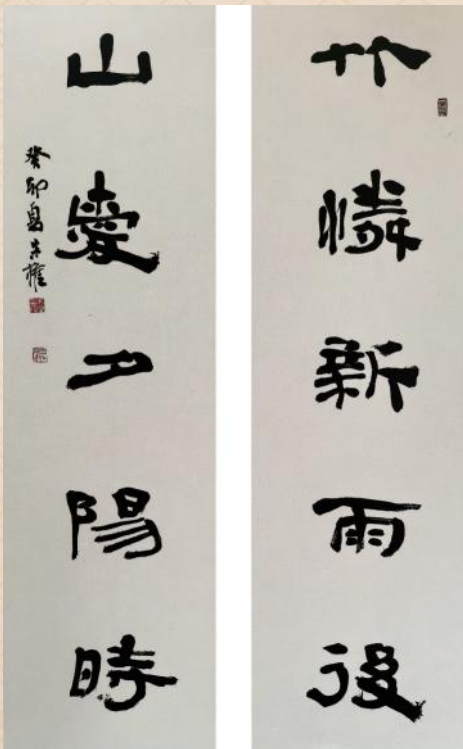 竹憐新雨後
山愛夕陽時
癸卯夏